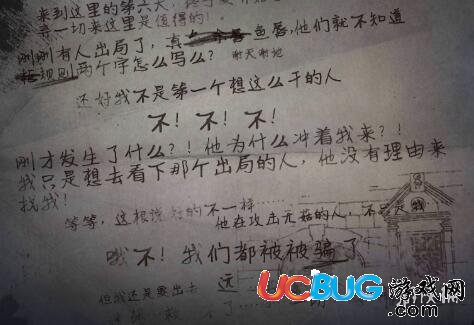 来到这里的第六天，终于要
寻一切来这里是值得的！
刚刚有人出局了，真 鱼唇，他们就不知道
规则两个字怎么写么？ 谢天谢地
还好我不是第一个想这么干的人
不！不！不！
刚才发生了什么？！他为什么冲着我来？！
我只是想去看下那个出局的人，他没有理由来
找我！
等等，这根说好的不一样……
他在攻击无辜的人，不只是我
哦不！我们都被被骗了
但我还是要出去 远
UCBUG 游戏网
.com